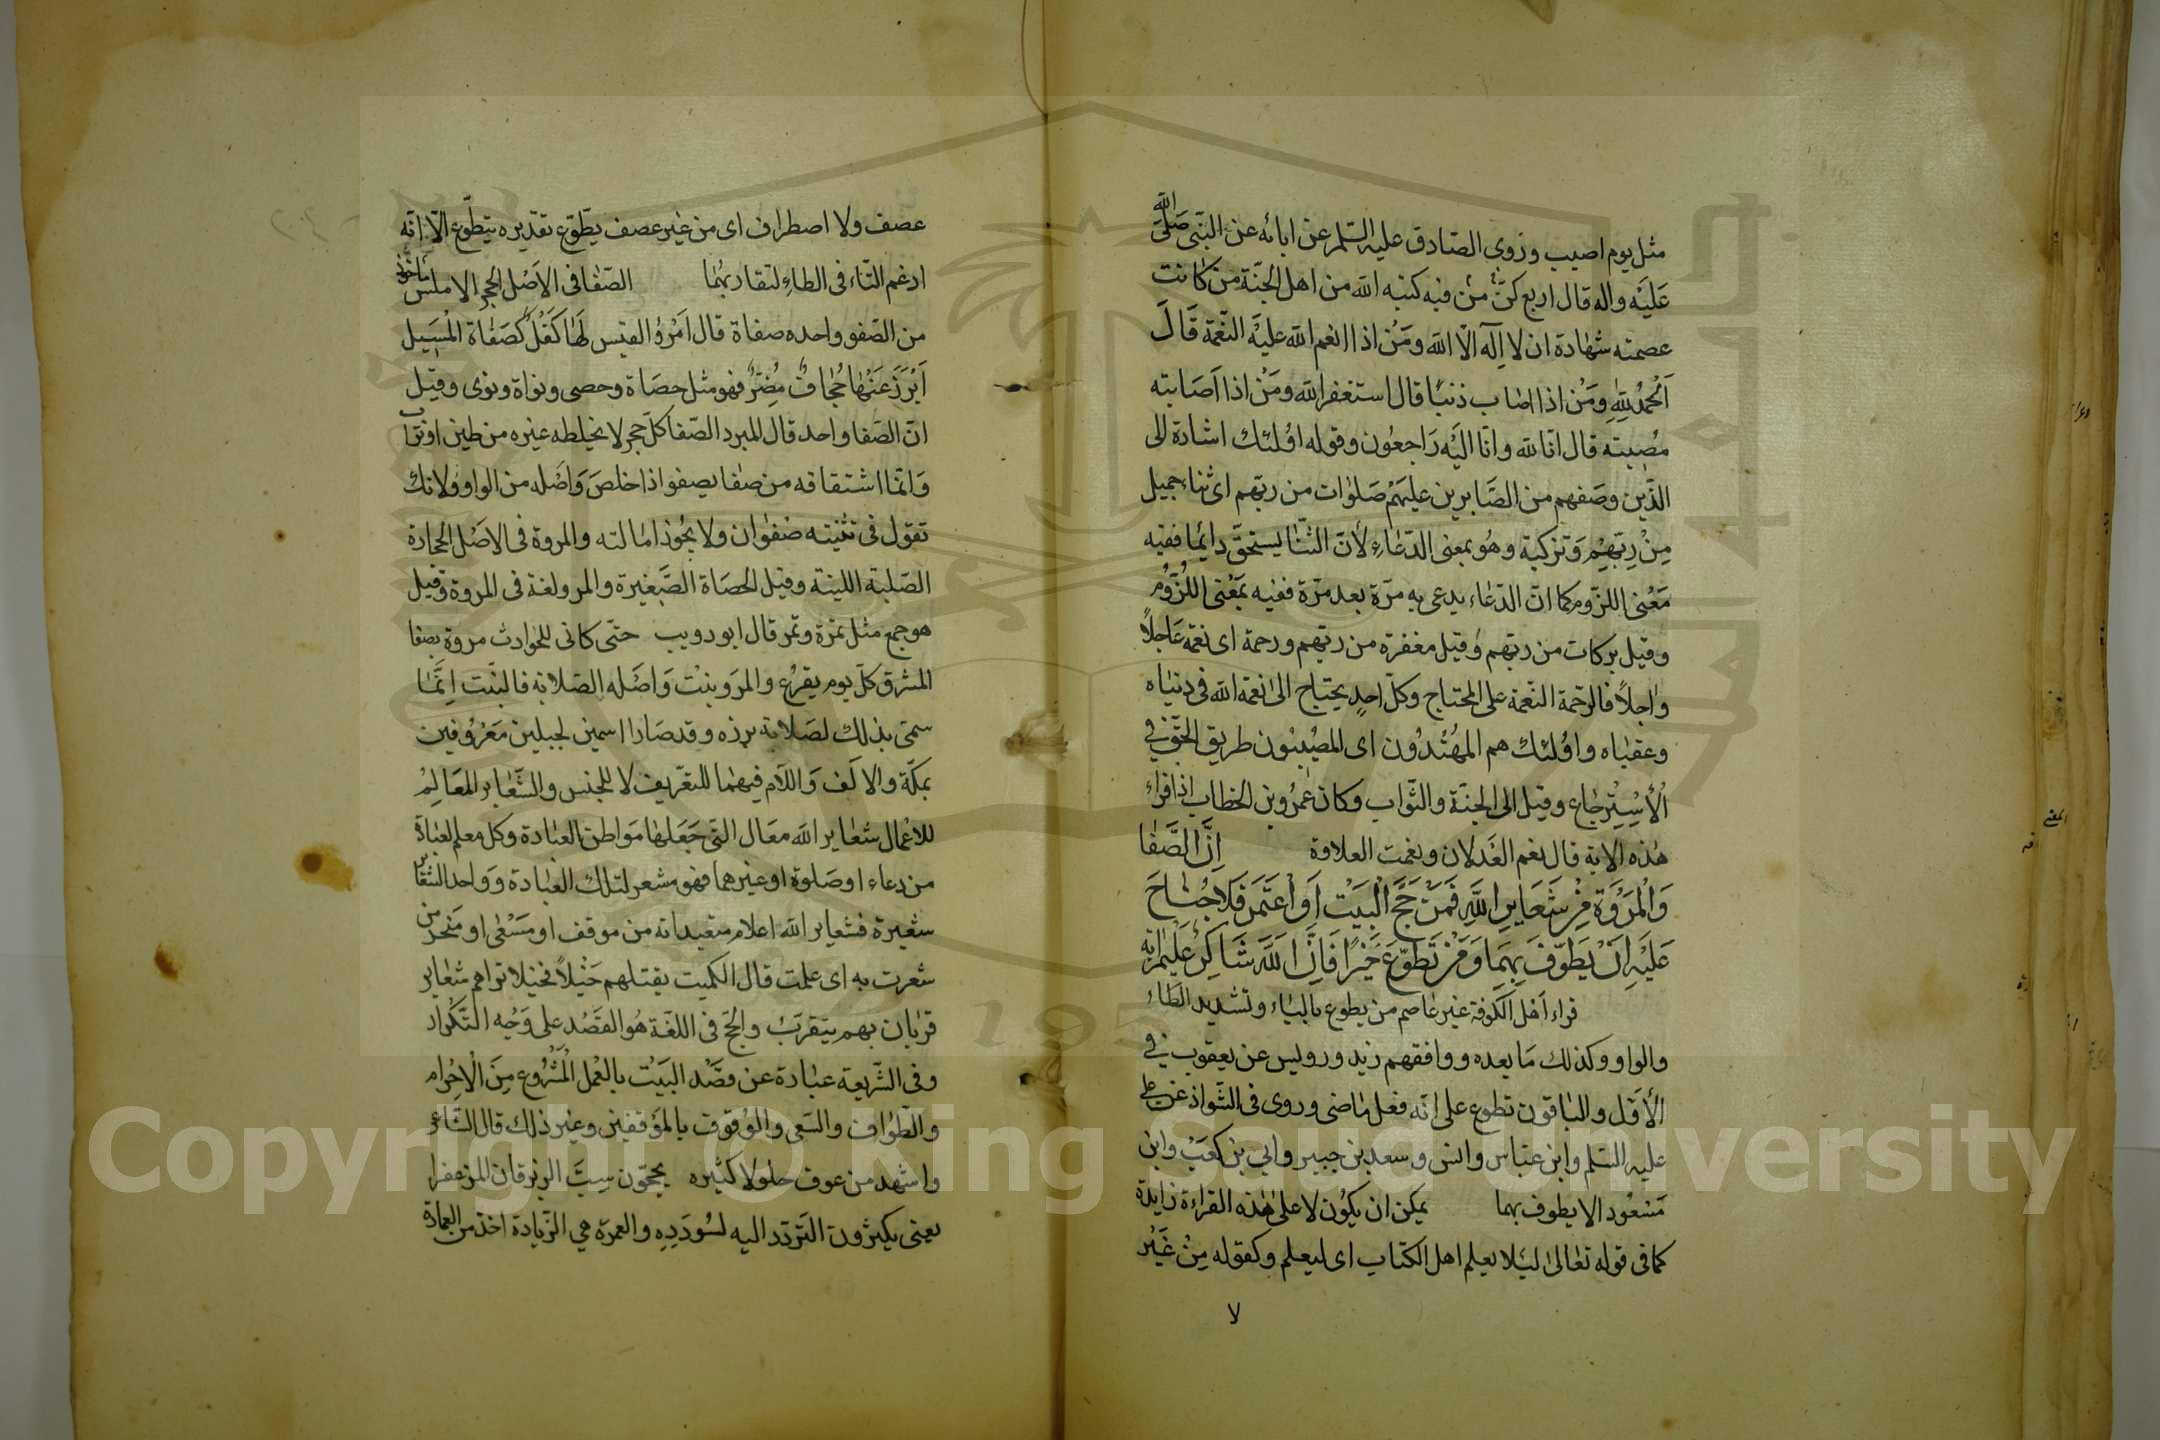 مثل يوم اصيب وروى الصّادق عليه السّلم عن ابائه عن النّبى صَلّى الله
عَليْه واله قال اربع كنّ من فيه كتبه الله من اهل الجنّة من كانت
عصمته شهادة ان لا اِله الّا الله ومَنْ اذا انعم الله عليْه النّعْمة قَالَ
اَلْحمْدُ لله ومَنْ اذا اصاب ذنبًا قال استغفر الله ومَنْ اذا اَصَابته
مصيبته قال انّا لله وانّا اليْه رَاجعُون وقوله اوْلئك اشارة الى
الذّين وصَفهم من الصّابرين عليهمْ صَلوات من ربّهم اى ثناء جميل
مِنْ رِبّهِمْ وَتزكية وهُو بمعنى الدّعَاءِ لأنّ الثنّا يستحقّ دائمًا ففيه
مَعْنى اللزّوم كما انّ الدّعاء يدعى به مرّة بعد مرّة ففيه بمَعْنى اللُزُوُم
وقيل بركات من ربهم وقيل مغفرة من ربّهم ورحمة اى نعمة عَاجلاً
واجلاً فالرّحمة النّعمة على المحتاج وكلّ احدٍ يحتاج الى نعمة الله فى دنياه
وعقباه واوْلئك هم المهْتدُون اى المصْيبُون طريق الحَقّ فى
اْلأسْتِرجاع وقيل الى الجنّة والثّواب وكان عمرُو بن الخطاب اذا قراء
هذه الاية قال نعم العَدلان ونعمت العلاوة اِنَّ الصَّفَا
وَالْمَرْوَةَ مِنْ شَعَايِرِ اللَّهِ فَمَنْ حَجَّ الْبَيْتَ اَوِ اعْتَمَرَ فَلا جُنَاحَ
عَلَيْهِ اَنْ يَطَّوَّفَ بِهِمَا وَمَنْ تَطَوَّعَ خَيْرًا فَاِنَّ اللَّهَ شَاكِرٌ عَلِيمٌ اية
قراء اَهْل الكوفة غير عاصم من يطوع بالياء وتشديد الطّاء
والواو وكذلك مَا بعده ووافقهم زيد ورويس عن يعقوب فى
الأوّل والباقون تطوع على انّه فعل ماضى وروى فى الشّواذ عن على
عليه السّلم وابن عبّاس وانس وسعد بن جبير وابي بن كعَبْ وابن
مَسعُود الا يطوف بهما يمكن ان يكُون لا على هذه القراءة زايدة
كما فى قوله تعَالىٰ ليَلا يعلم اهل الكتاب اى ليعلم وكقوله مِنْ غَيْر
لا
عصف ولا اصطراف اى من غير عصف يطّوّع تقديره يتطّوع الّا انّه
ادغم التّاء فى الطاءِ لتقاربهُمَا الصّفا فى الاَصْل الحجر الاملس مَاخوذ
من الصّفو واحده صفاة قال اَمْرؤ القيس لَهَا كَفَلٌ كَصَفَاة المْسَيل
اَبْرَزَ عَنْهَا جُحافٌ مُضِرٌ فهو مثل حصَاة وحصى ونواة ونوى وقيل
انّ الصّفا واحد قال المبرد الصّفا كلّ حجر لا يخلطه غيره من طين او تراب
وَانّما اشتقاقه من صفا يصفو اذا خلصَ وَاصْله من الواو ولانك
تقول فى تثنيته صفوان ولا يجُوز امالته والمروة فى الاصْل الحجارة
الصّلبة اللينة وقيل الحصَاة الصّغيرة والمرو لغة فى المروة وقيل
هو جمع مثل تمرْة وتمْر قال ابو دويب حتى كانى للحوادث مروة بصفا
المشرق كلّ يوم يقرع والمرَو بنْت وَاصْله الصّلابة فالنّبت اِنّمَا
سمّى بذلك لصَلابة بزره وقد صَارا اسمين لجبلين مَعْرُوفين
بمكّة والالَف وَاللّام فيهما للتعّريف لا للجنس والشّعاير المعَالِمْ
للاعْمال شعاير الله معَال التى جَعَلها مَواطن العبادة وكل معلم لعبادة
من دعاء او صَلوة او غيرهما فهو مشعر لتلك العبادة ووَاحد الشعائر
شعيرة فشعاير الله اعلام متعبداته من موقف او مَسْعى او مَنحر من
شعرت به اى علمت قال الكميت يقتلهم جَيْلاً فجيلا تراهم شعاير
قربان بهم يتقرّبُ والحجّ فى اللغة هُو القصْد على وَجْه التّكرار
وفى الشّريعة عبادة عن قصْد البَيْت بالعْمل الْمَشْرُوع مِنَ الْاِحْرام
والطّواف والسّعى والوُقوف بالمَوْقفين وغير ذلك قال الشّاعر
واشهد من عوف حلولا كثيره يحجّون سِبَّ الزبرقان المزعفرا
يعنى يكثرون التّردّد اليه لسُودَدِهِ والعمرة هي الزّيادة اخذ من العمارة